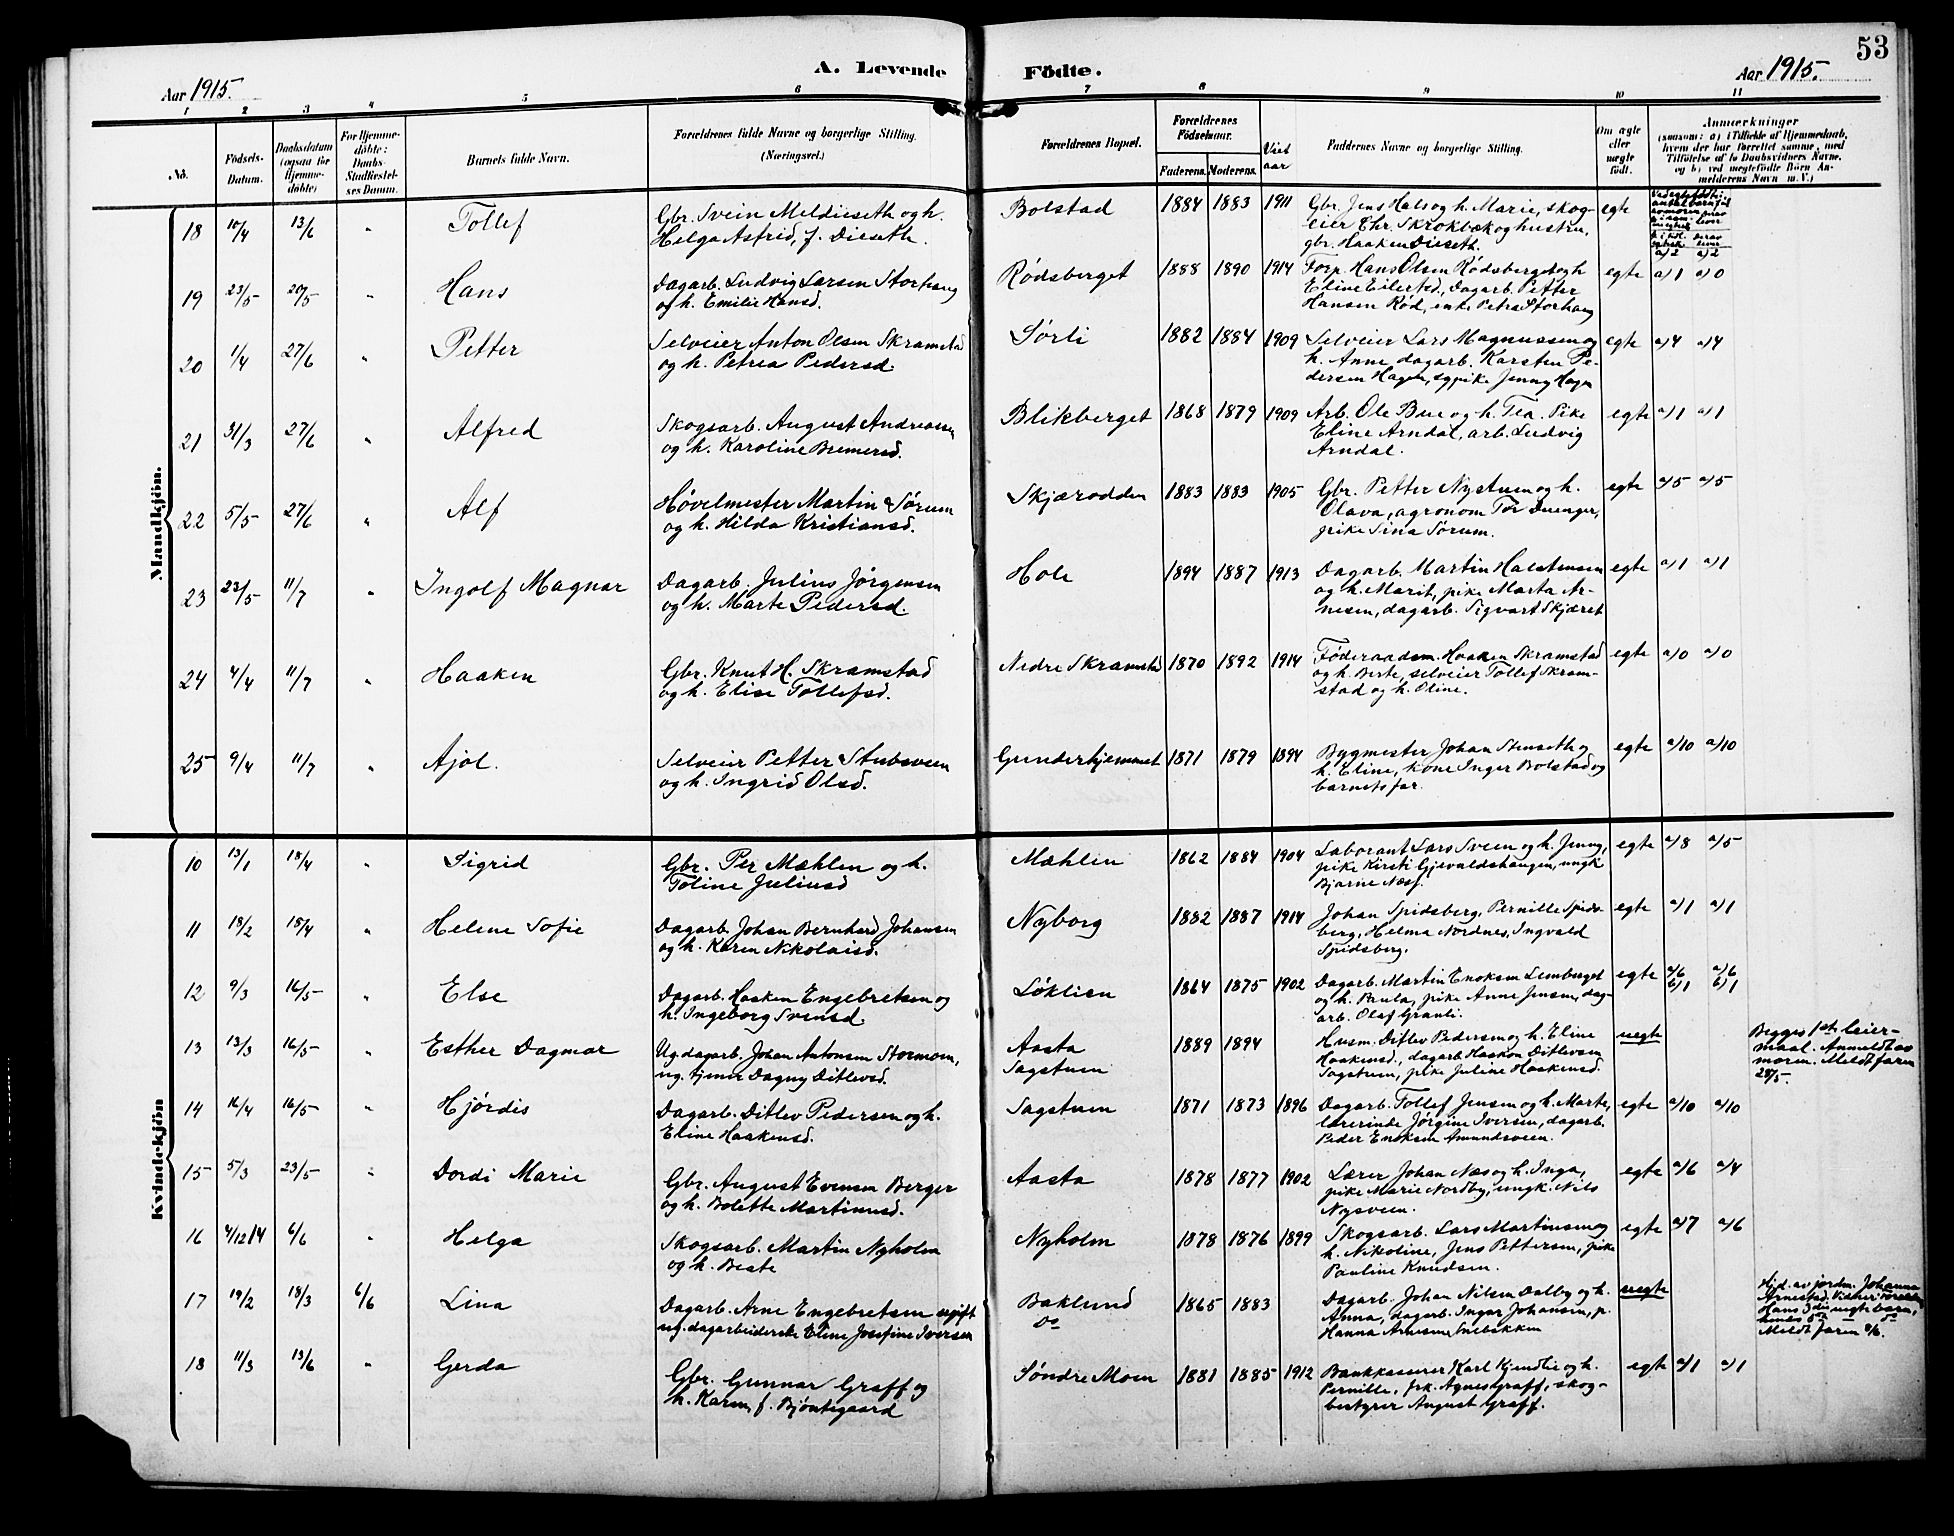 53
A. Levende Födte.
Aar 1915.
Aar 1915.
1 2 3 4 5 6 7 8 9 10 11
No.
Födsels-Datum.
Daabsdatum (ogsaa for Hjemmedöbte)
For Hjemmedöbte: Daabs-Stadfæstelses Datum.
Barnets fulde Navn.
Forældrenes fulde Navne og borgerlige Stilling.
(Næringsvei.)
Forældrenes Bopæl.
Forældrenes Födselsaar.
Faderens. Moderens.
Viet aar
Faddernes Navne og borgerlige Stilling.
Om ægte eller uægte födt.
Anmærkninger
(saasom: a) i Tilfælde af Hjemmedaab,
hvem der har forrettet samme, med
Tilföielse af to Daabsvidners Navne,
og b) ved uægtefödte Börn An-
melderens Navn m. V.)
Mandkjön.
18 10/4 13/6 " Tollef
Gbr. Svein Meldieseth og h.
Helga Astrid, f. Dieseth.
Bolstad 1884 1883 1911
Gbr. Jens Hals og h. Marie, skog-
eier Chr. Skrokbæk og hustru,
gbr. Haaken Dieseth.
egte
a/2 a/2
19 23/5 20/5 " Hans
Dagarb. Ludvig Larsen Storhaug
og h. Emilie Hansd.
Rødsberget 1888 1890 1914
Forp. Hans Olsen Rødsberget og h
Eline Eilertsd., Dagarb. Petter
Hansen Rød, enke Petra Storhaug
egte a/1 a/0
20 1/4 27/6 " Petter
Selveier Anton Olsen Skramstad
og h. Petrea Pedersd.
Sørli 1882 1884 1909
Selveier Lars Magnussen og
h. Anne dagarb. Karsten Pe-
dersen Hagen, sypike Jenny Hagen
egte a/4 a/4
21 31/3 27/6 " Alfred
Skogsarb. August Andreassen
og h. Karoline Bremersd.
Blikberget 1868 1879 1909
Arb. Ole Bue og h. Tea. Pike
Eline Arndal, arb. Ludvig
Arndal.
egte a/1 a/1
22 5/5 27/6 " Alf
Høvelmester Martin Sørum
og h. Hilda Kristiansd.
Skjærodden 1883 1883 1905
Gbr. Petter Nystuen og h.
Olava, agronom Tor Duenger,
pike Sina Sørum.
egte a/5 a/5
23 23/5 11/7 " Ingolf Magnar
Dagarb. Julius Jørgensen
og h. Marte Pedersd.
Hole 1894 1887 1913
Dagarb. Martin Halstensen
og h. Marit, pike Marta Ar-
nesen, dagarb. Sigvart Skjæret
egte a/1 a/1
24 4/4 11/7 " Haaken
Gbr. Knut H. Skramstad
og h. Elise Tollefsd.
Nedre Skramstad 1870 1892 1914
Føderaadsm. Haaken Skramstad
og h. Berte, selveier Tollef Skram-
stad og h. Oline.
egte a/0 a/0
25 9/4 11/7 " Ajol.
Selveier Petter Stubsveen
og h. Ingrid Olsd.
Gunderhjemmet 1871 1879 1894
Bygmester Johan Stenseth og
h. Eline, kone Inger Bolstad og
barnets far.
egte a/10 a/10
Kvindekjön
10 13/1 18/4 " Sigrid
Gbr. Per Mæhlen og h.
Toline Juliusd
Mæhlen 1862 1884 1904
Laborant Lars Sveen og h. Jenny,
pike Kirsti Gjevaldshaugen, ungk
Bjarne Næss.
egte a/8 a/5
11 18/2 18/4 " Helene Sofie
Dagarb. Johan Bernhard Johansen
og h. Karen Nikolaisd.
Nyborg 1882 1887 1914
Johan Spidsberg, Pernille Spids-
berg, Helma Nordnes, Ingvald
Spidsberg.
egte a/1 a/1
12 9/3 16/5 " Else
Dagarb. Haaken Engebretsen og
h. Ingeborg Svensd.
Løklien 1864 1875 1902
Dagarb. Martin Enoksen Lemberget
og h. Paula, pike Anne Jensen, dag-
arb. Olaf Granli.
egte a/6 b/1 a/6 b/1
13 13/3 16/5 " Esther Dagmar
Ug. dagarb. Johan Antonsen Stormoen,
ug. tjener Dagny Ditlevsd.
Aasta
Sagstuen 1889 1894
Husm. Ditlev Pedersen og h. Eline
Haakensd., dagarb. Haakon Ditlevsen
Sagstuen, pike Juline Haakensd.
uegte
Begges 1ste leier-
maal. Anmeldt av
moren. Meldt faren
28/5.
14 16/4 16/5 " Hjørdis
Dagarb. Ditlev Pedersen og h.
Eline Haakensd.
Sagstuen 1871 1873 1896
Dagarb. Tollef Jensen og h. Marte,
lærerinde Jørgine Iversen, dagarb.
Peder Enoksen Amundsveen.
egte a/10 a/10
15 5/3 23/5 " Dordi Marie
Gbr. August Evensen Berger
og h. Bolette Martinusd.
Aasta 1878 1877 1902
Lærer Johan Næs og h. Inga,
pike Marie Nordby, ungk. Nils
Nysveen.
egte a/6 a/4
16 4/12 14 6/6 " Helga
Skogsarb. Martin Nyholm
og h. Beate
Nyholm 1878 1876 1899
Skogsarb. Lars Martinsen og
h. Nikoline, Jens Pettersen, pike
Pauline Knudsen.
egte a/7 a/6
17 19/2 18/3 6/6 Lina
Dagarb. Arne Engebretsen ugift
ug. dagarbeiderske Eline Josefine Iversen
Baklund
Do 1865 1883
Dagarb. Johan Nilsen Dalby og h.
Anna, dagarb. Ingar Johansen, p.
Hanna Arnesen Snebakken
uegte
Hjd. av jordm. Johanna
Arnestad.
Hans 3die uegte barn,
hendes 5te
Meldt faren 8/6.
18 11/3 13/6 " Gerda
Gbr. Gunnar Graff og
h. Karen, f. Bjøntegaard
Søndre Moen 1881 1885 1912
Bankkasserer Karl Kjendlie og h.
Pernille, frk. Agnes Graff, skog-
bestyrer August Graff.
egte a/1 a/1